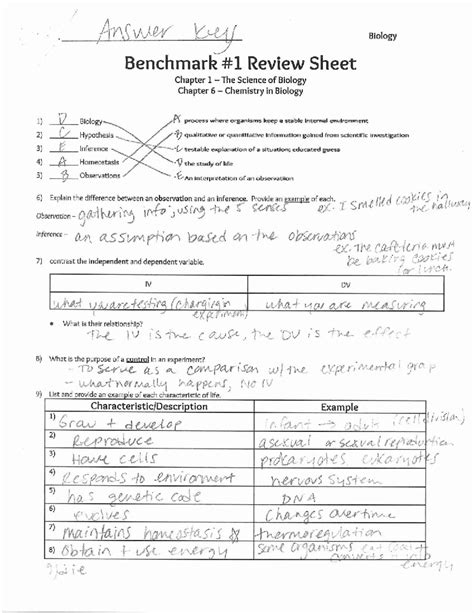 Answer Key
Biology
Benchmark #1 Review Sheet
Chapter 1 – The Science of Biology
Chapter 6 – Chemistry in Biology
1) D Biology A process where organisms keep a stable internal environment
2) C Hypothesis B qualitative or quantitative information gained from scientific investigation
3) E Inference C testable explanation of a situation; educated guess
4) A Homeostasis D the study of life
5) B Observations E An interpretation of an observation
6) Explain the difference between an observation and an inference. Provide an example of each.
Observation - gathering info using the 5 senses ex. I smelled cookies in the hallway
Inference - an assumption based on the observations
ex. The cafeteria must be baking cookies for lunch.
7) contrast the independent and dependent variable.
IV DV
what you are testing (changing in experiment) what you are measuring
• What is their relationship?
The IV is the cause, the DV is the effect
8) What is the purpose of a control in an experiment?
- To serve as a comparison w/ the experimental grop
- what normally happens, no IV
9) List and provide an example of each characteristic of life.
Characteristic/Description Example
1) Grow + develop infant → adult (cell division)
2) Reproduce asexual or sexual reproduction
3) Have cells prokaryotes eukaryotes
4) Responds to enviroment nervous system
5) has genetic code DNA
6) evolves Changes overtime
7) maintains homeostasis thermoregulation
8) Obtain + use energy some organisms eat food + converts energy
9) die